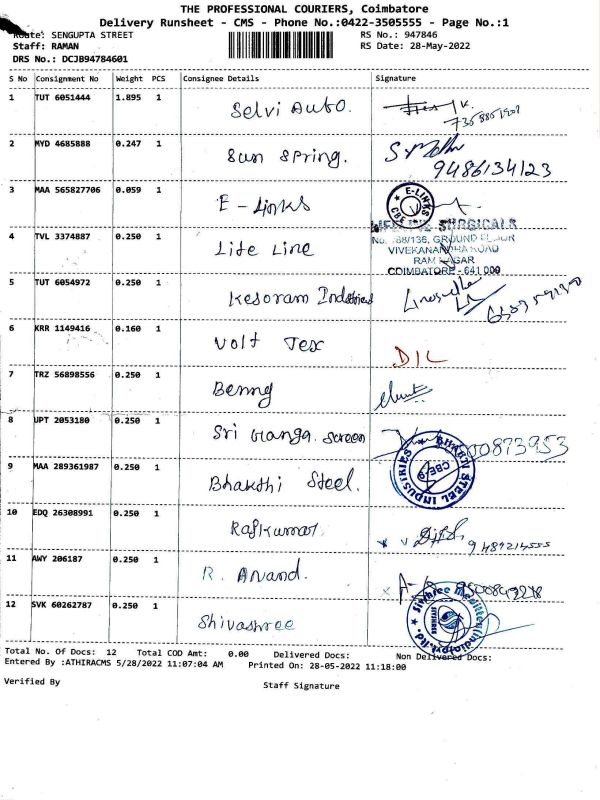 THE PROFESSIONAL COURIERS, Coimbatore
Delivery Runsheet - CMS - Phone No.:0422-3505555 - Page No.:1
Route: SENGUPTA STREET RS No.: 947846
Staff: RAMAN RS Date: 28-May-2022
DRS No.: DCJB94784601
S No Consignment No Weight PCS Consignee Details Signature
1 TUT 6051444 1.895 1 Selvi Auto.
2 MYD 4685888 0.247 1 Sun Spring. 9486134123
3 MAA 565827706 0.059 1 E-Links E-LINKS CBE
4 TVL 3374887 0.250 1 Life Line
SURGICALS
GROUND FLOOR
VIVEKANANDHA ROAD
RAM NAGAR
COIMBATORE - 641 009
5 TUT 6054972 0.250 1 Kesoram Industries
6 KRR 1149416 0.160 1 Volt Tex DIL
7 TRZ 56898556 0.250 1 Benny
8 UPT 2053180 0.250 1 Sri Ganga Screen
9 MAA 289361987 0.250 1 Bhakthi Steel. STEEL INDUSTRIES CBE-9
10 EDQ 26308991 0.250 1 Rajkumar 9489214555
11 AWY 206187 0.250 1 R. Anand.
12 SVK 60262787 0.250 1 Shivashree
Total No. Of Docs: 12 Total COD Amt: 0.00 Delivered Docs: Non Delivered Docs:
Entered By :ATHIRACMS 5/28/2022 11:07:04 AM Printed On: 28-05-2022 11:18:00
Verified By Staff Signature